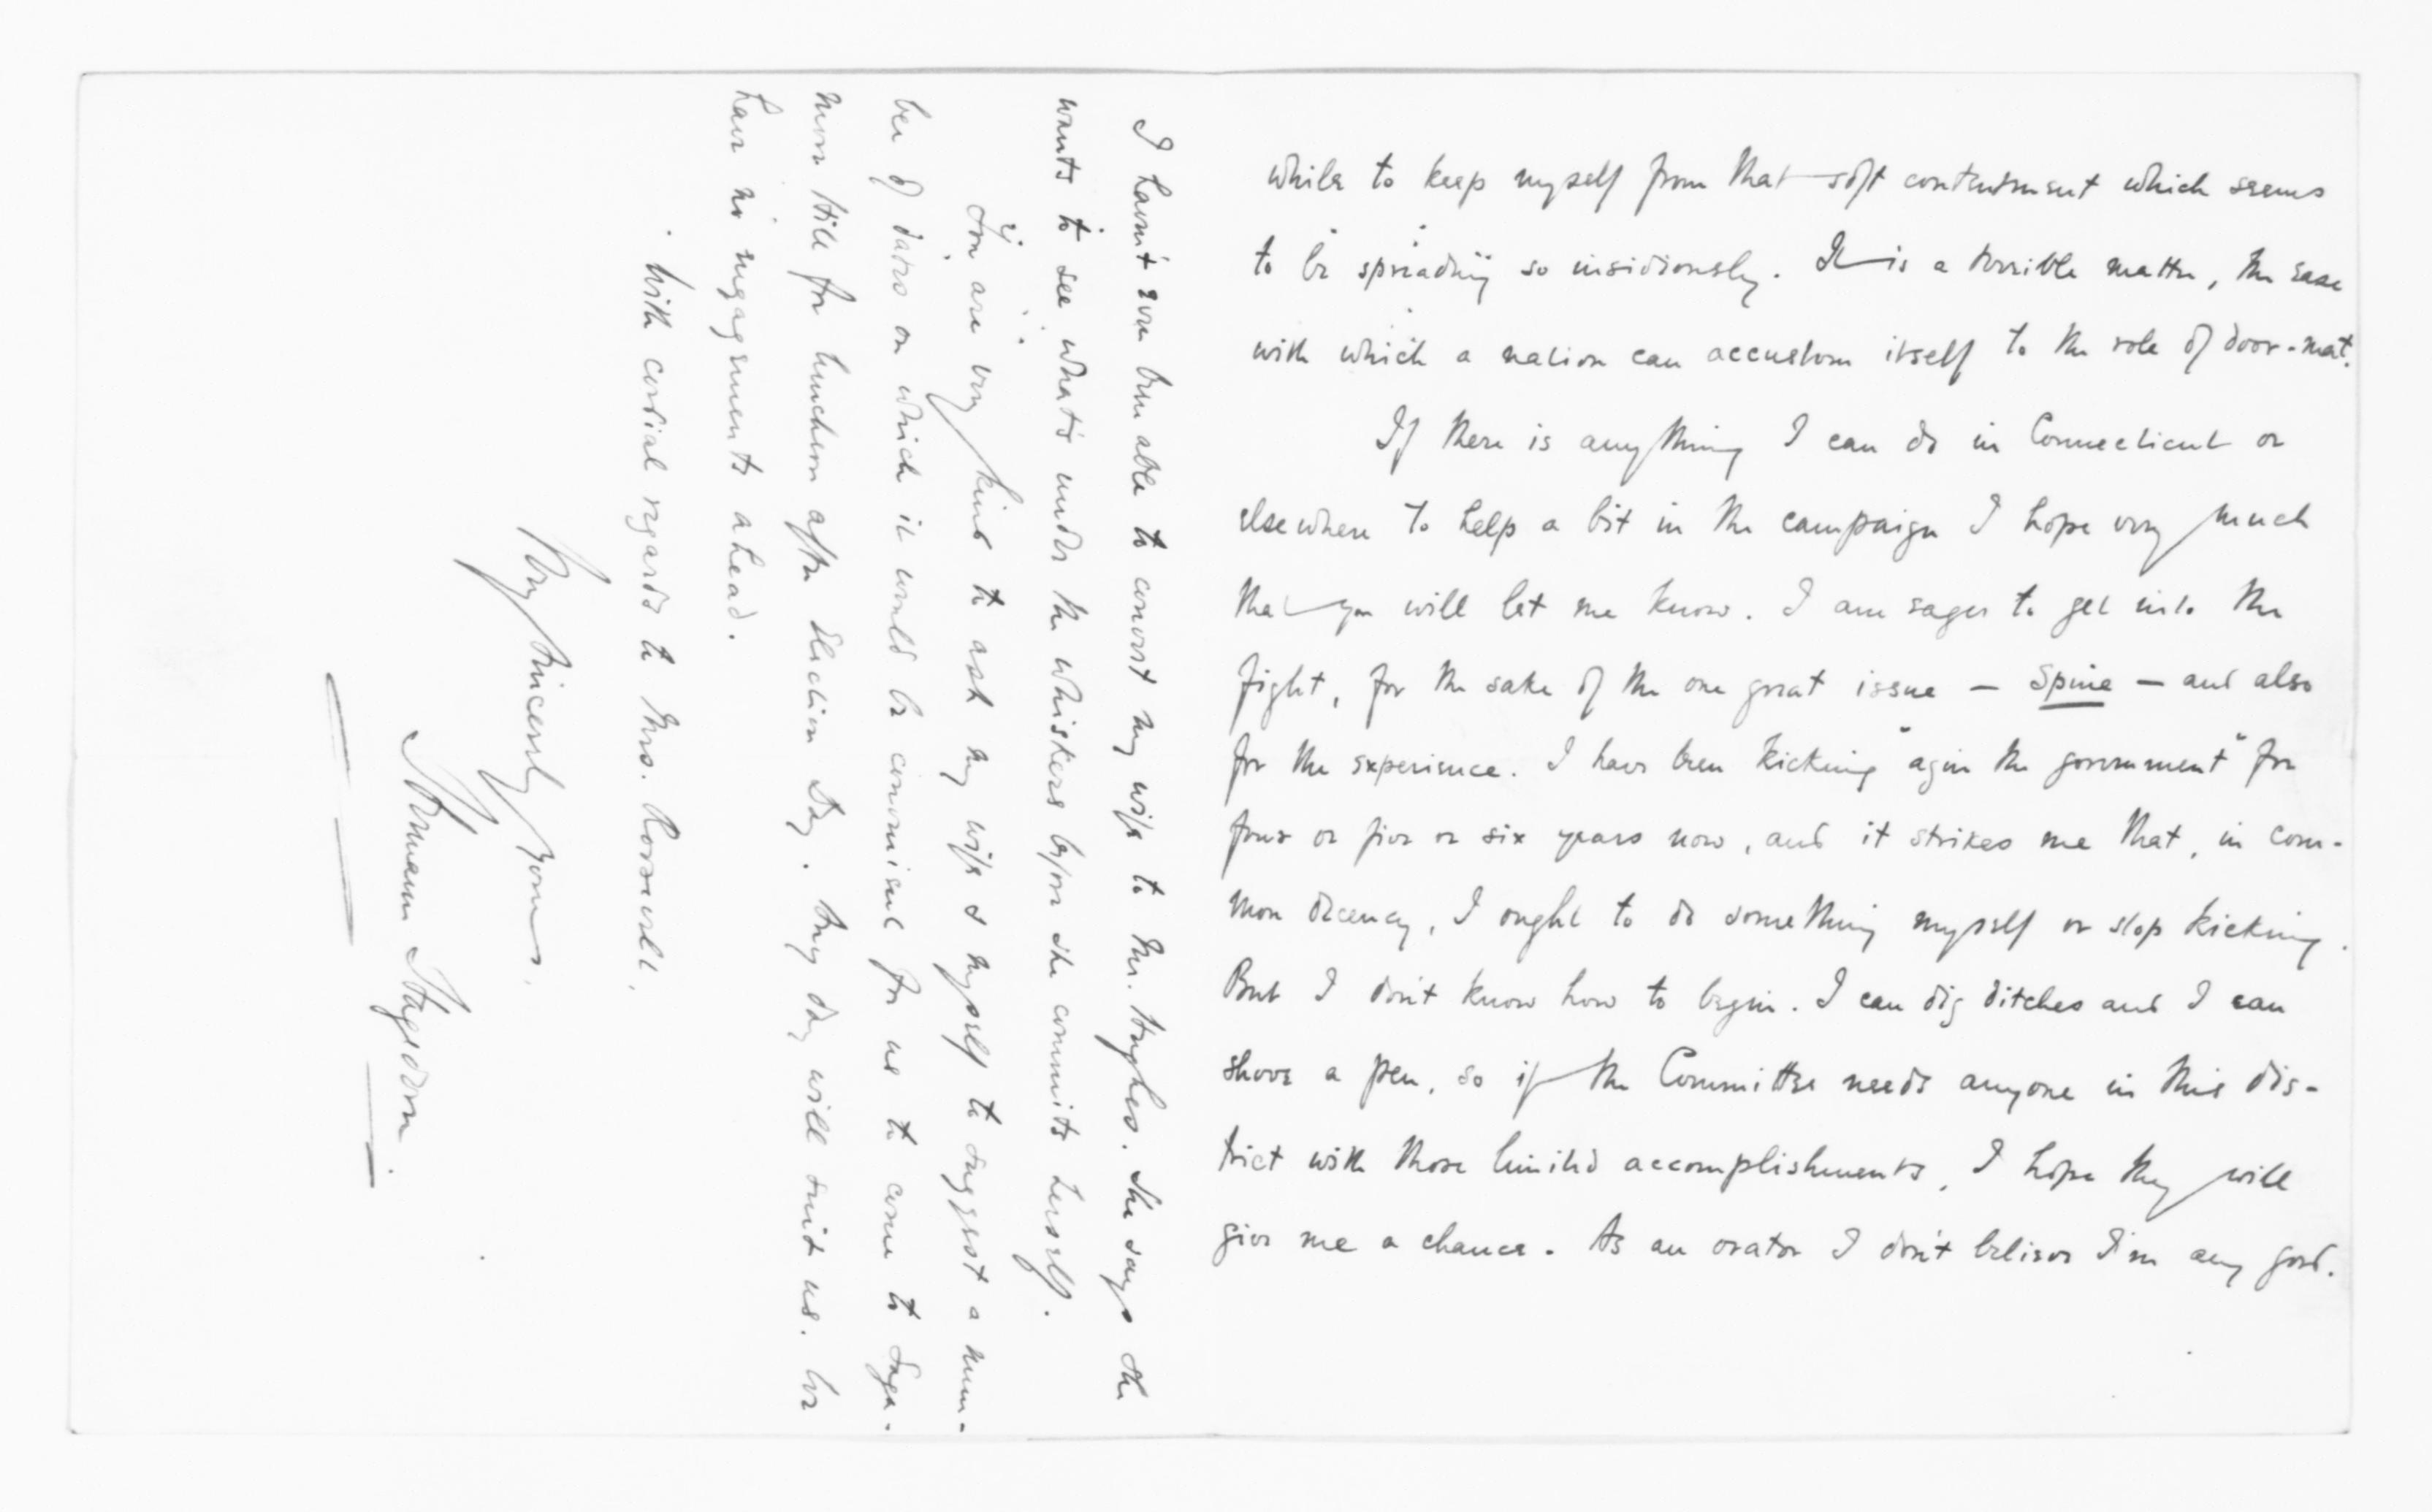 while to keep myself from that soft contentment which seems
to be spreading so insidiously. It is a terrible matter, the ease
with which a nation can accustom itself to the role of door-mat.
If there is anything I can do in Connecticut or
elsewhere to help a bit in the campaign I hope very much
that you will let me know. I am eager to get into the
fight, for the sake of the one great issue — Spine — and also
for the experience. I have been kicking "agin the government" for
four or five or six years now, and it strikes me that, in com-
mon decency, I ought to do something myself or stop kicking.
But I don't know how to begin. I can dig ditches and I can
shove a pen, so if the Committee needs anyone in this dis-
trict with those limited accomplishments, I hope they will
give me a chance. As an orator I don't believe I'm any good.
I haven't even been able to convert my wife to Mr. Hughes. She says she
wants to see what's under the whiskers before she commits herself.
You are very kind to ask my wife & myself to suggest a num-
ber of dates on which it would be convenient for us to come to Saga-
more Hill for luncheon after Election Day. Any day will suit us. We
have no engagements ahead.
With cordial regards to Mrs. Roosevelt,
Very sincerely yours,
Hermann Hagedorn.